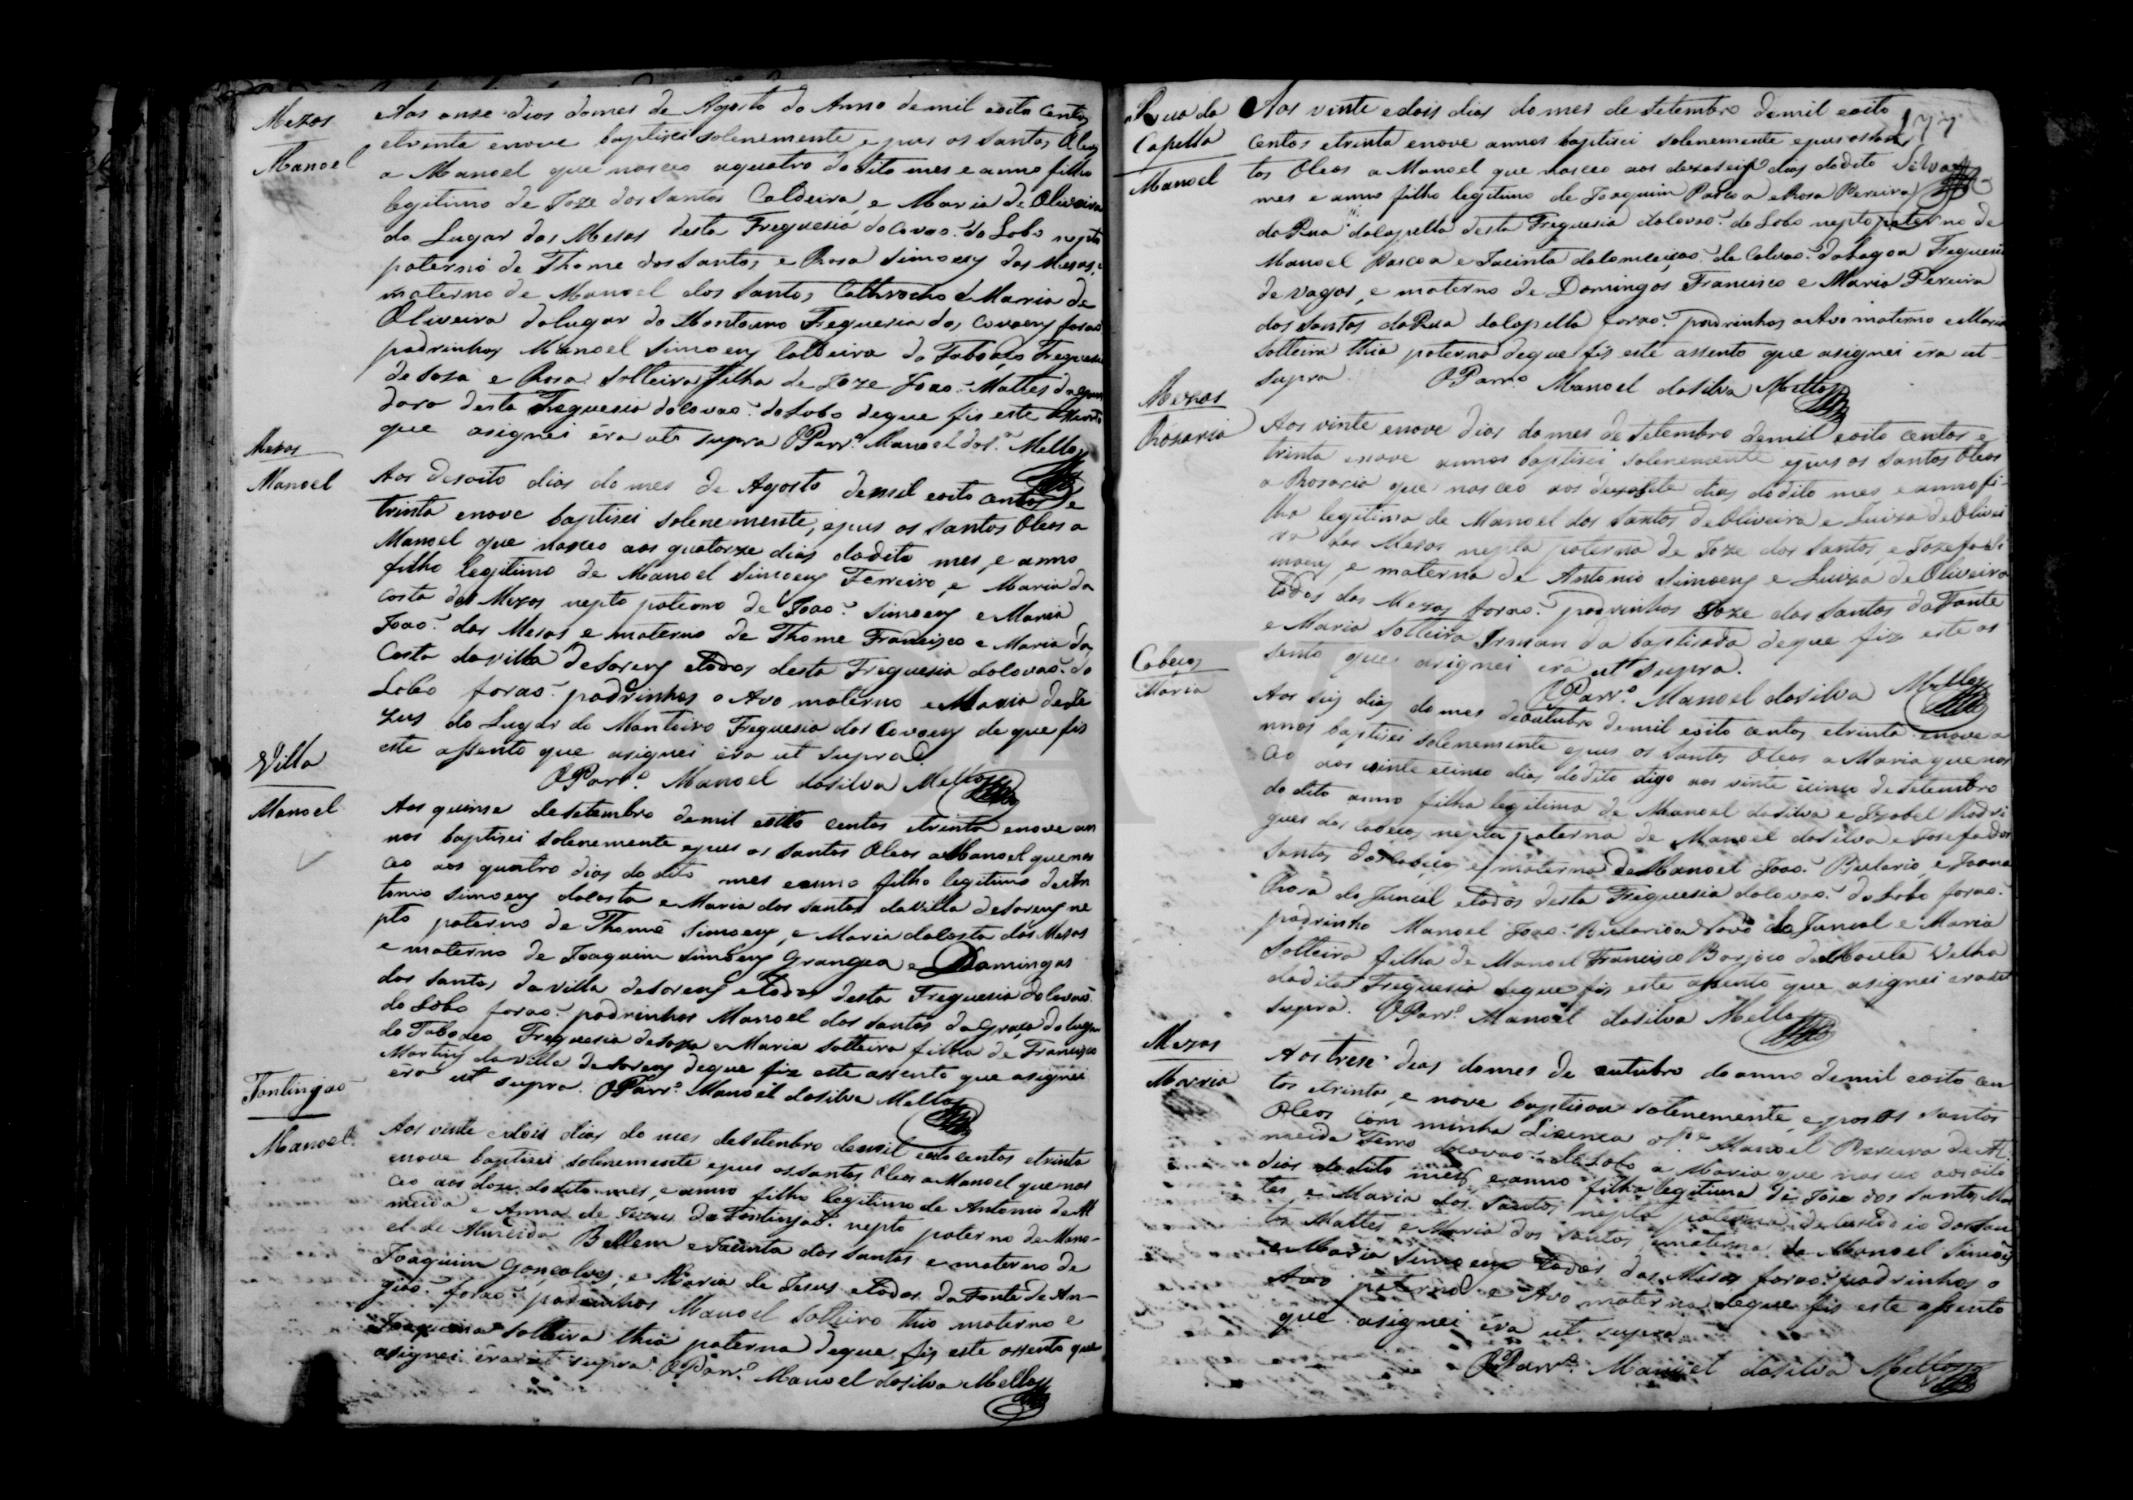 Mezas
Manoel
Aos onze dias do mes de Agosto do Anno demil eoito Centos
etrinta enove baptisei solenemente epus os santos Oleos
a Manoel que nasceo aquatro dodito mes e anno filho
legitimo de Joze dos Santos Caldeira, e Maria de Oliveira
do Lugar das Mesas desta Freguesia docovao do Lobo nepto
paterno de Thome dos Santos e Rosa Simoens das Mesas, e
materno de Manoel dos Santos e Maria de
Oliveira dolugar do Montouro Freguesia dos Covoens forao
padrinhos Manoel Simoens Caldeira do Freguesia
de Soza e Rosa Solteira filha de Joze Joao Mattes
desta Freguesia docovao doLobo deque fis este assento
que asignei éra ut supra OParr.º Manoel daS.ª Mello
Mezas
Manoel
Aos desoito dias do mes de Agosto demil eoito centos e
trinta enove baptisei solenemente, epus os santos Oleos a
Manoel que nasceo aos quatorze dias dodito mes, e anno
filho legitimo de Manoel Simoens Ferreiro, e Maria da
Costa das Mezas nepto paterno de Joao Simoens e Maria
Joao das Mesas e materno de Thome Francisco e Maria da
Costa davilla deSorens etodos desta Freguesia docovao do
Lobo forao padrinhos o Avo materno e Maria deJe
zus do Lugar do Monteiro Freguesia dos Covoens de que fis
este assento que asignei éra ut supra
OParr.º Manoel dasilva Mello
Villa
Manoel
Aos quinse desetembro demil eoito centos etrinta enove an
nos baptisei solenemente epus os santos Oleos aManoel quenas
ceo aos quatro dias do dito mes eanno filho legitimo deAn
tonio Simoens dacosta e Maria dos santos davilla deSorens ne
pto paterno de Thomé Simoens, e Maria dacosta das Mesas
e materno de Joaquim Simoens Grangea e Domingas
dos santos da villa deSorens etodos desta Freguesia docovao
do Lobo forao padrinhos Manoel dos santos daGraça dolugar
do Taboaco Freguesia deSoza e Maria solteira filha de Francisco
Martins da villa deSorens deque fiz este assento que asignei
éra ut supra. OParr.º Manoel dasilva Mello
Fontingao
Manoel
Aos vinte edois dias do mes desetenbro demil eoitocentos etrinta
enove baptisei solenemente epus ossantos Oleos aManoel quenas
ceo aos doze dodito mes, e anno filho legitimo de Antonio de Al
meida e Anna de Jezus da Fontinjao nepto paterno de Mano-
el de Almeida Bellem e Jacinta dos santos e materno de
Joaquim Gonçalves, e Maria de Jesus etodos daFonte de An-
giao forao padrinhos Manoel Solteiro thio materno e
Joaquina solteira thia paterna deque fis este assento que
asignei éra ut supra OParr.º Manoel dasilva Mello
177
Rua da
Capella
Manoel
Aos vinte edois dias do mes de setembro demil eoito
centos etrinta enove annos baptisei solenemente epus os san
tos Oleos a Manoel que nasceo aos dezaseis dias dodito
Silva
mes e anno filho legitimo de Joaquim Pascoa eRosa Pereira
da Rua dacapella desta Freguesia docovao do Lobo nepto paterno de
Manoel Pascoa e Jacinta daconceiçao de Calvao dalagoa Freguesia
de Vagos, e materno de Domingos Francisco e Maria Pereira
dos santos daRua dacapella forao padrinhos oAvo materno eMaria
solteira thia paterna deque fis este assento que asignei éra ut
supra. OParr.º Manoel dasilva Mello
Mezas
Rozaria
Aos vinte enove dias do mes de setembro demil eoito centos e
trinta enove annos baptisei solenemente epus os santos Oleos
a Rosaria que nasceo aos dezasete dias dodito mes e anno fi-
lha legitima de Manoel dos santos deOliveira e Luiza deOlivei
ra das Mesas nepta paterna de Joze dos santos, e Jozefa Si
moens, e materna de Antonio Simoens e Luiza de Oliveira
todos das Mezas forao padrinhos Joze dos santos daFonte
e Maria Solteira Irman da baptisada deque fiz este as
sento que asignei éra ut supra.
OParr.º Manoel dasilva Mello
Cabeças
Maria
Aos seis dias do mes deoutubro demil eoito centos etrinta enove a
nnos baptisei solenemente epus os santos Oleos a Maria que nas
ceo aos vinte ecinco dias dodito digo aos vinte ecinco desetembro
do dito anno filha legitima de Manoel dasilva e Izabel Rodri
gues das Cabeças nepta paterna de Manoel dasilva e Josefa dos
santos das Cabeças e materna deManoel Joao e Joana
Rosa do Juncal etodos desta Freguesia docovao doLobo forao
padrinho Manoel Joao Avo do Juncal e Maria
Solteira filha de Manoel Francisco da Velha
dadita Freguesia deque fis este assento que asignei éra ut
supra. OParr.º Manoel dasilva Mello
Mezas
Maria
Aos treze dias domes de outubro do anno demil eoito cen
tos etrinta, e nove baptisou solenemente epos os santos
Oleos com minha Lisenca o P.e Manoel Pereira de Al
meida docovao do Lobo a Maria que nasceo aosoito
dias do dito mes eanno filha legitima de Joze dos santos Mat
tes e Maria dos Santos nepta paterna de Custodio dos San
tos Mattes e Maria dos Santos, ematerna de Manoel Simoens
e Maria Simoens todos das Mesas forao padrinhos o
Avo paterno e Avo materna deque fis este assento
que asignei éra ut supra
OParr.º Manoel dasilva Mello